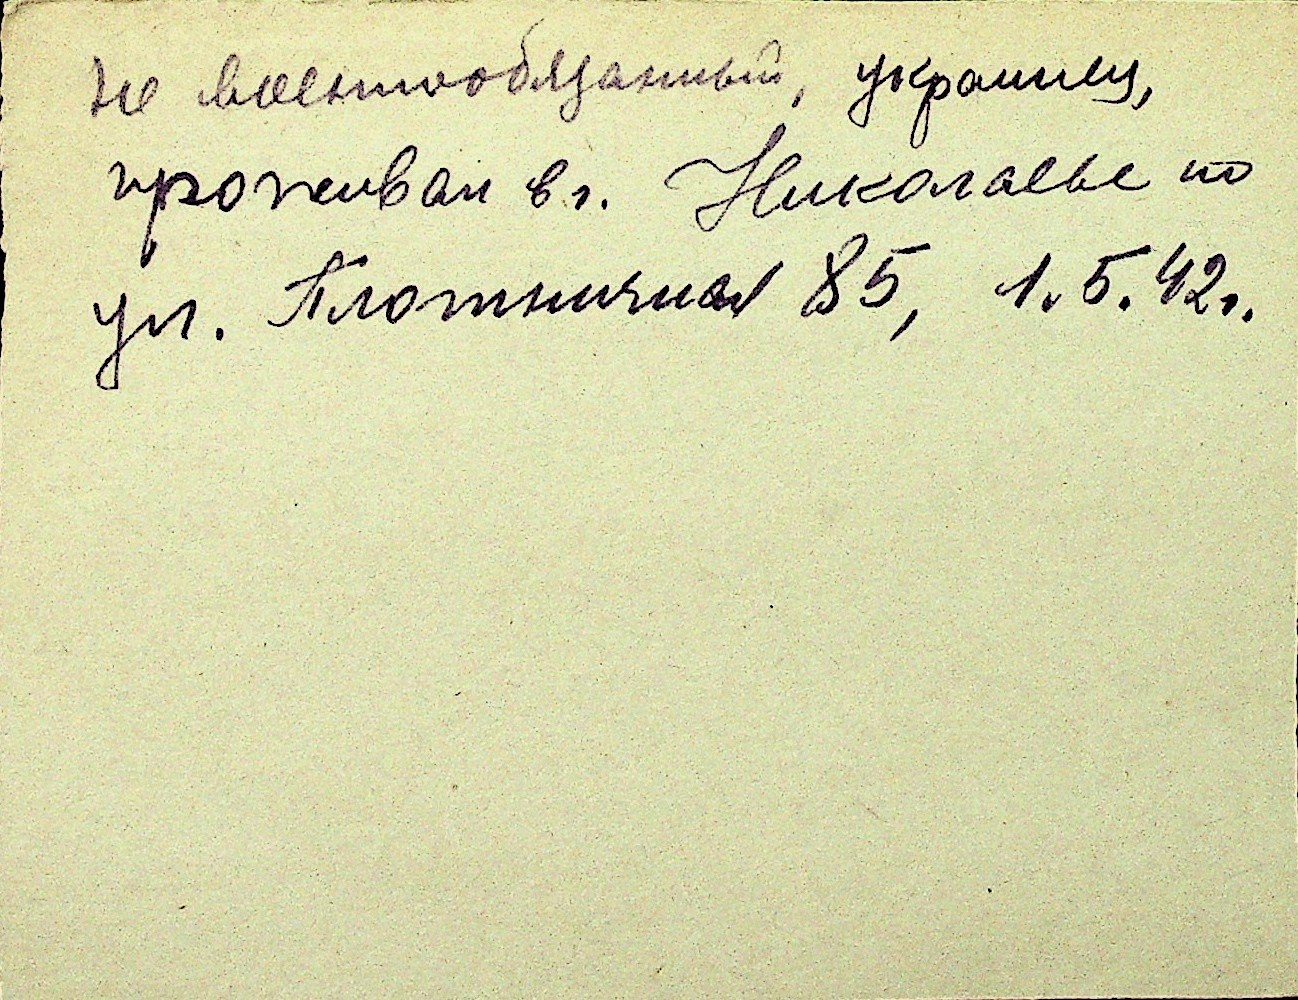 не военнообязанный, украинец,
проживал в г. Николаеве по
ул. Плотничная 85, 1.5.42г.